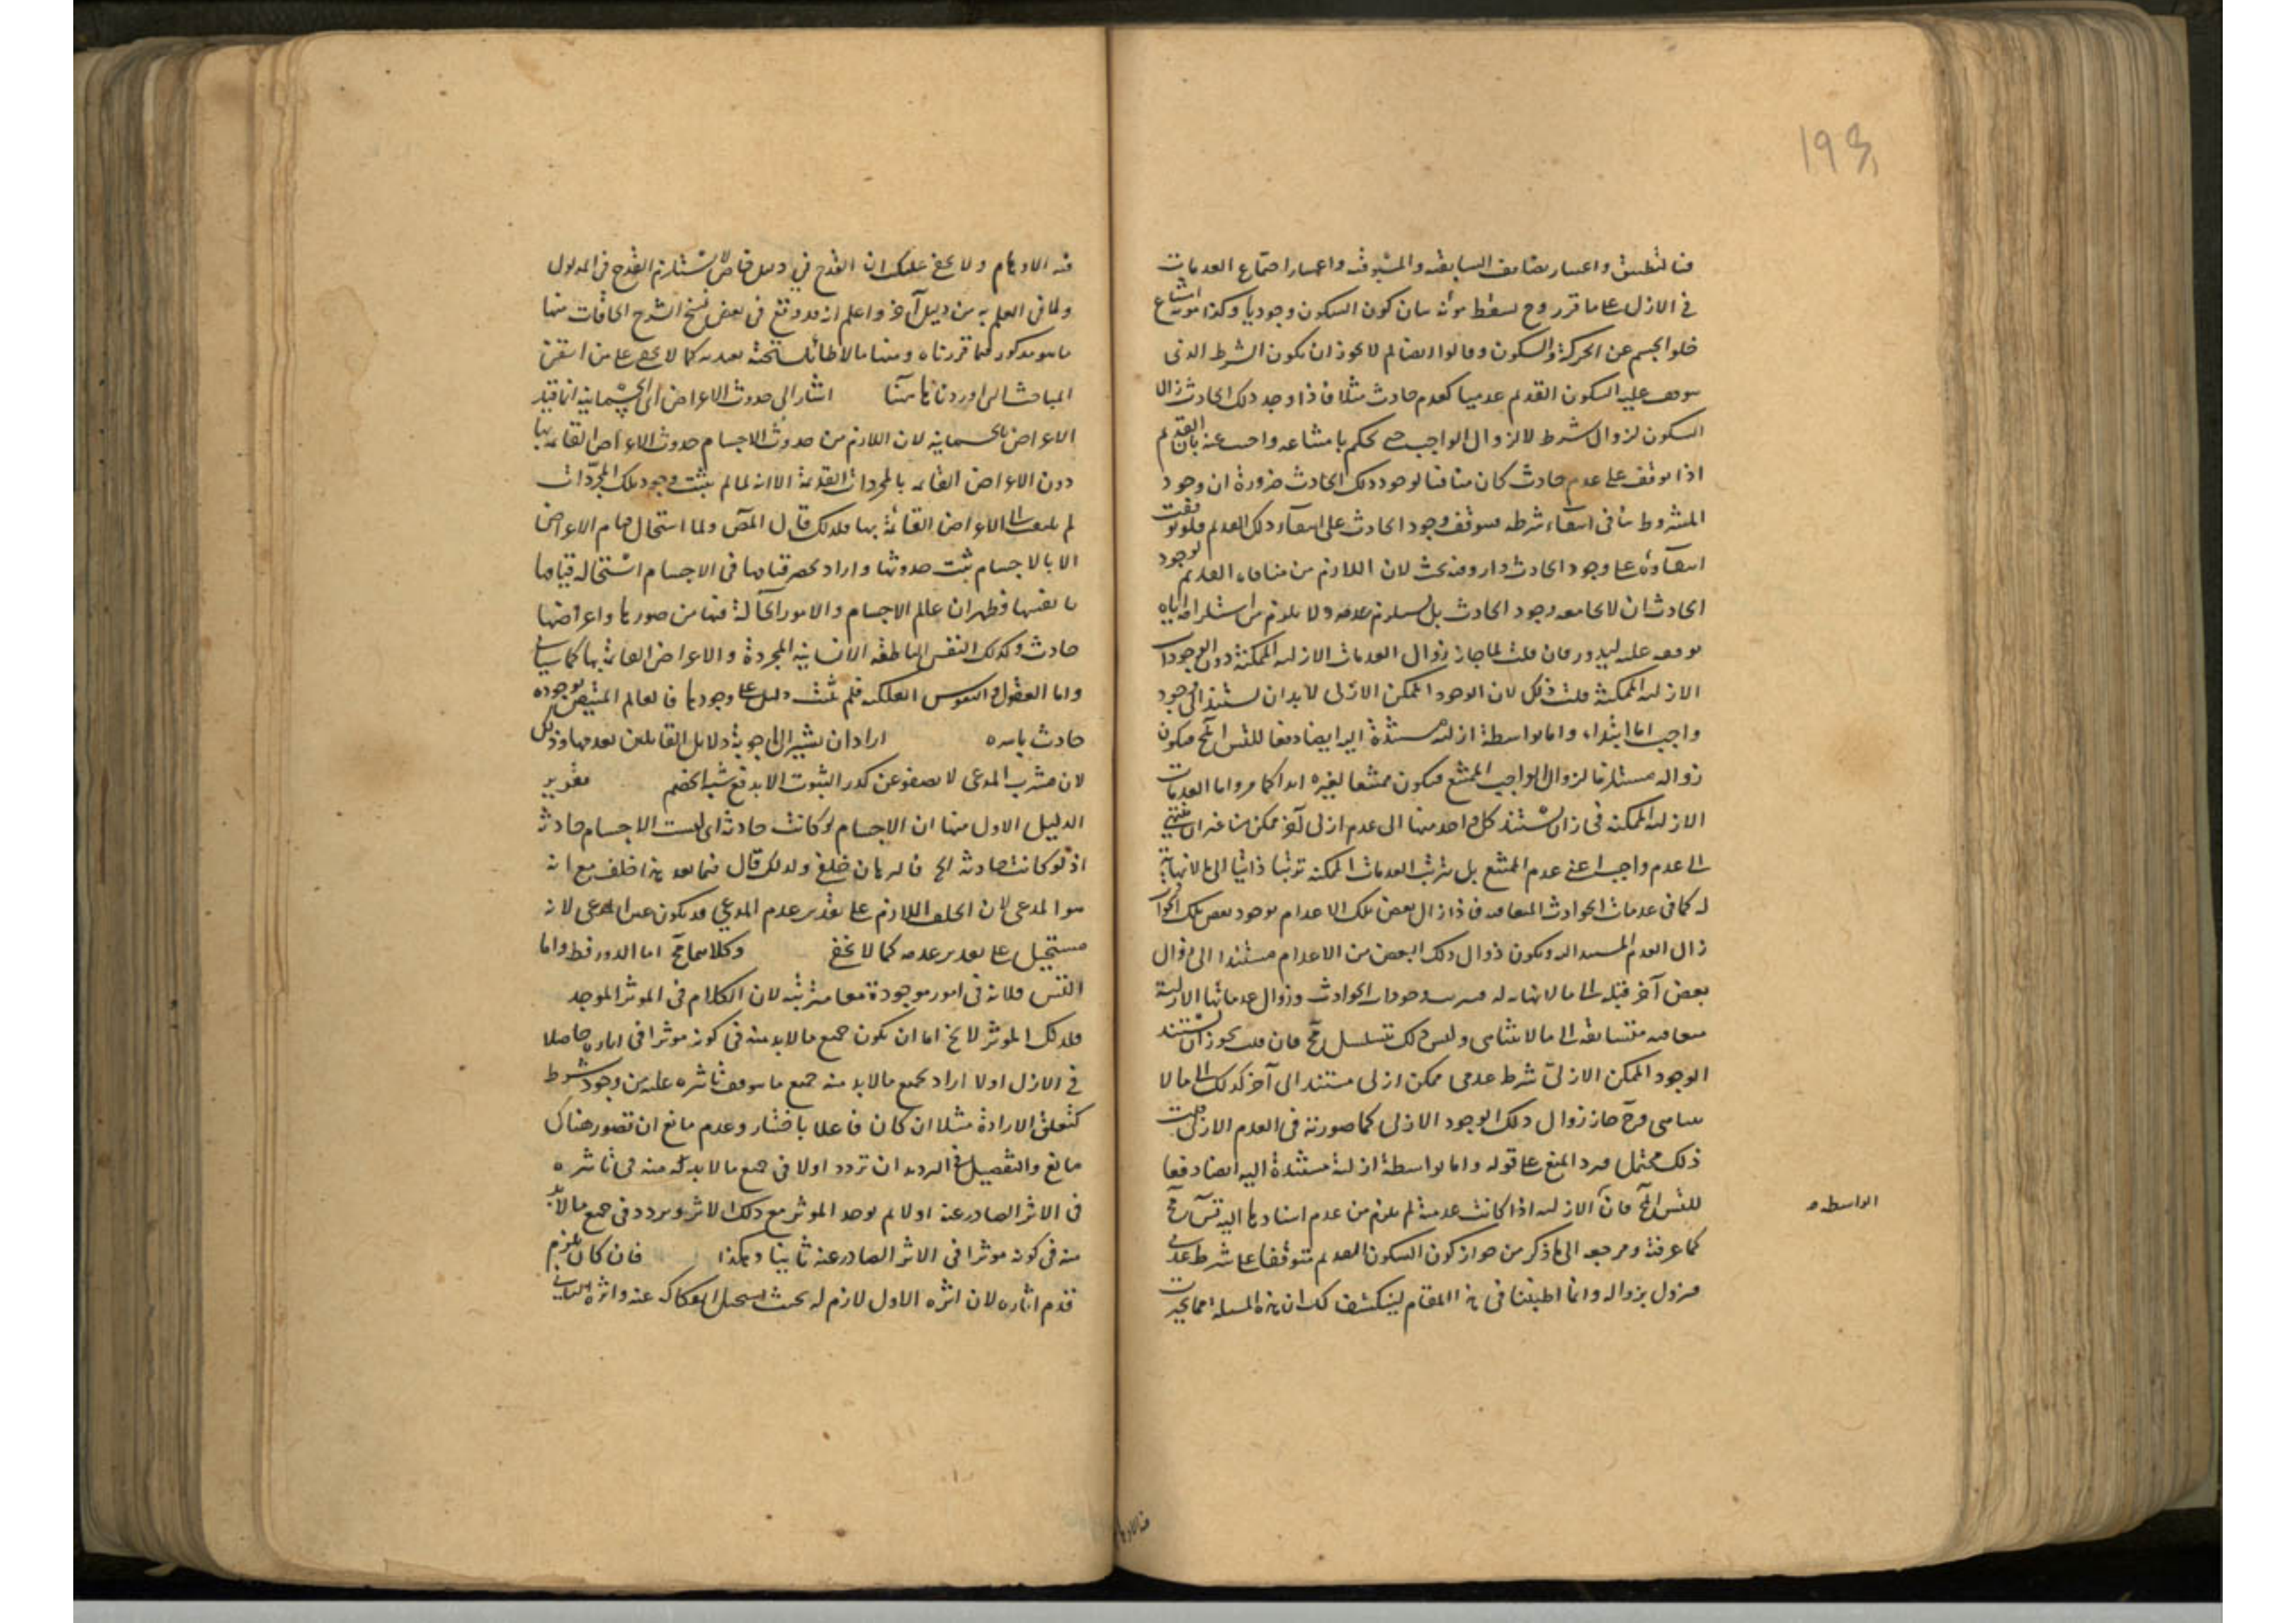 فيه التطبيق واعتبار تضايف السابقية والمسبوقية واعتبار اجتماع العدمات
في الازل على ما قرر وح يسقط مونة بيان كون السكون وجوديا وكذا مونة امتناع
خلو الجسم عن الحركة والسكون وقالوا ايضا لم لا يجوز ان يكون الشرط الذي
يتوقف عليه السكون القديم عدميا كعدم حادث مثلا فاذا وجد ذلك الحادث زال
السكون لزوال شرط لا لزوال الواجب حتى يحكم بامتناعه واجيب عنه بان القديم
اذا توقف على عدم حادث كان منافيا لوجود ذلك الحادث ضرورة ان وجود
المشروط ينافي انتفاء شرطه فيتوقف وجود الحادث على انتفاء ذلك القديم فلو توقف
انتفاؤه على وجود الحادث دار وفيه بحث لان اللازم من منافاة القديم لوجود
الحادث ان لا يجامعه وجود الحادث بل يستلزم عدمه ولا يلزم من استلزامه اياه
توقفه عليه ليدور فان قلت لما جاز زوال العدمات الازلية الممكنة دون الوجودات
الازلية الممكنة قلت ذلك لان الوجود الممكن الازلي لا بد ان يستند الى وجود
واجب اما ابتداء واما بواسطة ازلية مستندة اليه ايضا دفعا للتس المح فيكون
زواله مستلزما لزوال الواجب الممتنع فيكون ممتنعا لغيره ابدا كما مر واما العدمات
الازلية الممكنة فجاز ان يستند كل واحد منها الى عدم ازلي آخر ممكن من غير ان ينتهي
الى عدم واجب اعني عدم الممتنع بل يترتب العدمات الممكنة ترتبا ذاتيا الى ما لا نهاية
له كما في عدمات الحوادث المتعاقبة فاذا زال بعض تلك الاعدام بوجود بعض تلك الحوادث
زال العدم المستند اليه ويكون زوال ذلك البعض من الاعدام مستندا الى زوال
بعض آخر قبله الى ما لا نهاية له فيترتب وجودات الحوادث وزوال عدماتها الازلية
متعاقبة متسابقة الى ما لا يتناهى وليس ذلك تسلسل مح فان قلت يجوز ان يستند
الوجود الممكن الازلي شرط عدمي ممكن ازلي مستند الى آخر كذلك الى ما لا
يتناهى وح جاز زوال ذلك الوجود الازلي كما صورته في العدم الازلي قلت
ذلك محتمل فيرد المنع على قوله واما بواسطة ازلية مستندة اليه ايضا دفعا
للتس المح فان الازلية اذا كانت عدمية لم يلزم من عدم استنادها اليه تس مح
الواسطة
كما عرفته ومرجعه الى ما ذكر من جواز كون السكون القديم متوقفا على شرط عدمي
فيزول بزواله وانما اطنبنا في هذا المقام لينكشف لك ان هذه المسئلة مما تحيرت
فيه الاوهام
فيه الاوهام ولا يخفى عليك ان القدح في دليل خاص لا يستلزم القدح في المدلول
ولا في العلم به من دليل آخر واعلم انه قد وقع في بعض نسخ الشرح الحاقات منها
ما هو مذكور فيما قررناه ومنها ما لا طائل تحته بعد به كما لا يخفى على من اتقن
المباحث التي اوردناها هنا اشار الى حدوث الاعراض اى الجسمانية انما قيد
الاعراض بالجسمانية لان اللازم من حدوث الاجسام حدوث الاعراض القائمة بها
دون الاعراض القائمة بالمجردات القديمة الا انه لما لم يثبت وجود تلك المجردات
لم يلتفت الى الاعراض القائمة بها فلذلك قال المص ولما استحال قيام الاعراض
الا بالاجسام ثبت حدوثها واراد بحصر قيامها في الاجسام استحالة قيامها
بانفسها فظهر ان عالم الاجسام والامور الحالة فيها من صورها واعراضها
حادث وكذلك النفس الناطقة الانسانية المجردة والاعراض القائمة بها كما سياتي
واما العقول والنفوس الفلكية فلم يثبت دليل على وجودها فالعالم المتيقن وجوده
حادث باسره اراد ان يشير الى اجوبة دلايل القايلين بقدمها وذلك
لان مشرب المدعى لا يصفو عن كدر الثبوت الا بدفع شبه الخصم تقرير
الدليل الاول منها ان الاجسام لو كانت حادثة اى ليست الاجسام حادثة
اذ لو كانت حادثة الخ فالبرهان خلفي ولذلك قال فيما بعد هذا خلف مع انه
هو المدعى لان الخلف اللازم على تقدير عدم المدعى قد يكون عين المدعى لانه
مستحيل على تقدير عدمه كما لا يخفى وكلاهما مح اما الدور فظ واما
التس فلانه في امور موجودة معا مترتبة لان الكلام في الموثر الموجد
فلذلك الموثر لا يخ اما ان يكون جميع ما لا بد منه في كونه موثرا في اثاره حاصلا
في الازل اولا اراد بجميع ما لا بد منه جميع ما يتوقف تاثيره عليه من وجود شرط
كتعلق الارادة مثلا ان كان فاعلا باختيار وعدم مانع ان تصور هناك
مانع والتفصيل في الترديد ان تردد اولا في جميع ما لا بد له منه في تاثيره
في الاثر الصادر عنه اولا لم يوجد الموثر مع ذلك الاثر ويردد في جميع ما لا بد
منه في كونه موثرا في الاثر الصادر عنه ثانيا وهكذا فان كان يلزم
قدم اثاره لان اثره الاول لازم له بحيث يستحيل انفكاكه عنه واثره الثاني